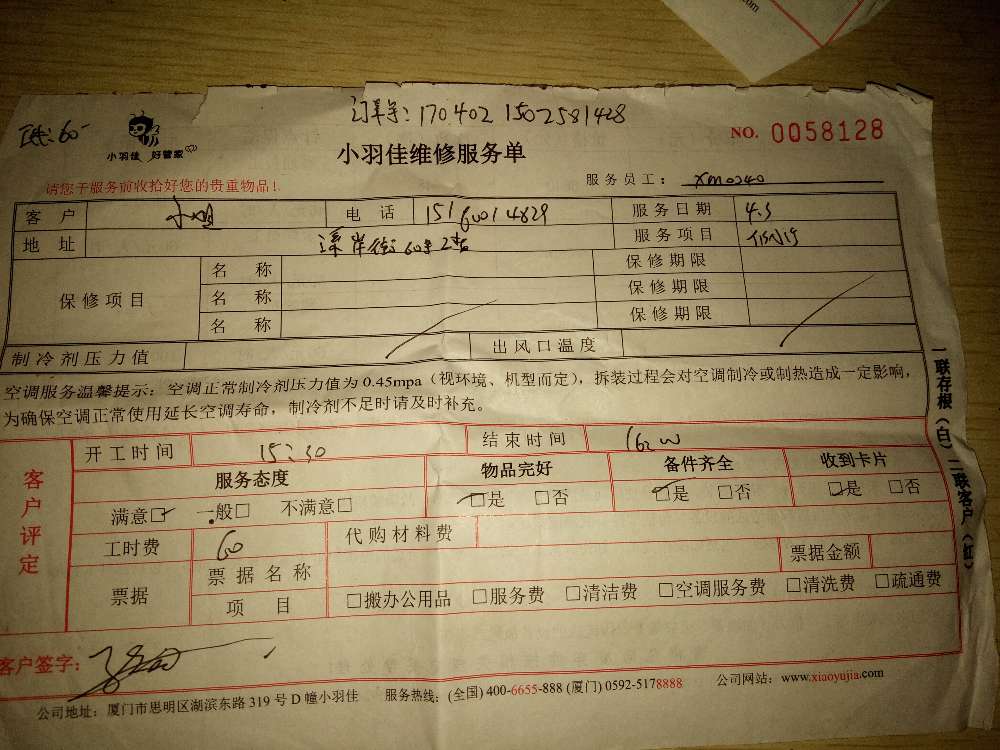 订单号: 170402 1502581428
60-
小羽佳 好管家
小羽佳维修服务单
NO. 0058128
请您于服务前收拾好您的贵重物品!
服务员工: XM0240
客户 小姐 电话 15160014829 服务日期 4.3
地址 60号2楼 服务项目
保修项目 名称 保修期限
名称 保修期限
名称 保修期限
制冷剂压力值 出风口温度
空调服务温馨提示: 空调正常制冷剂压力值为 0.45mpa(视环境、机型而定),拆装过程会对空调制冷或制热造成一定影响,
为确保空调正常使用延长空调寿命,制冷剂不足时请及时补充。
客户评定
开工时间 15:30 结束时间
服务态度 物品完好 备件齐全 收到卡片
满意□ 一般□ 不满意□ □是 □否 □是 □否 □是 □否
工时费 60 代购材料费
票据 票据名称 票据金额
项目 □搬办公用品 □服务费 □清洁费 □空调服务费 □清洗费 □疏通费
客户签字:
公司地址: 厦门市思明区湖滨东路 319 号 D 幢小羽佳 服务热线: (全国) 400-6655-888 (厦门) 0592-5178888 公司网站: www.xiaoyujia.com
一联存根(白) 二联客户(红)
.com